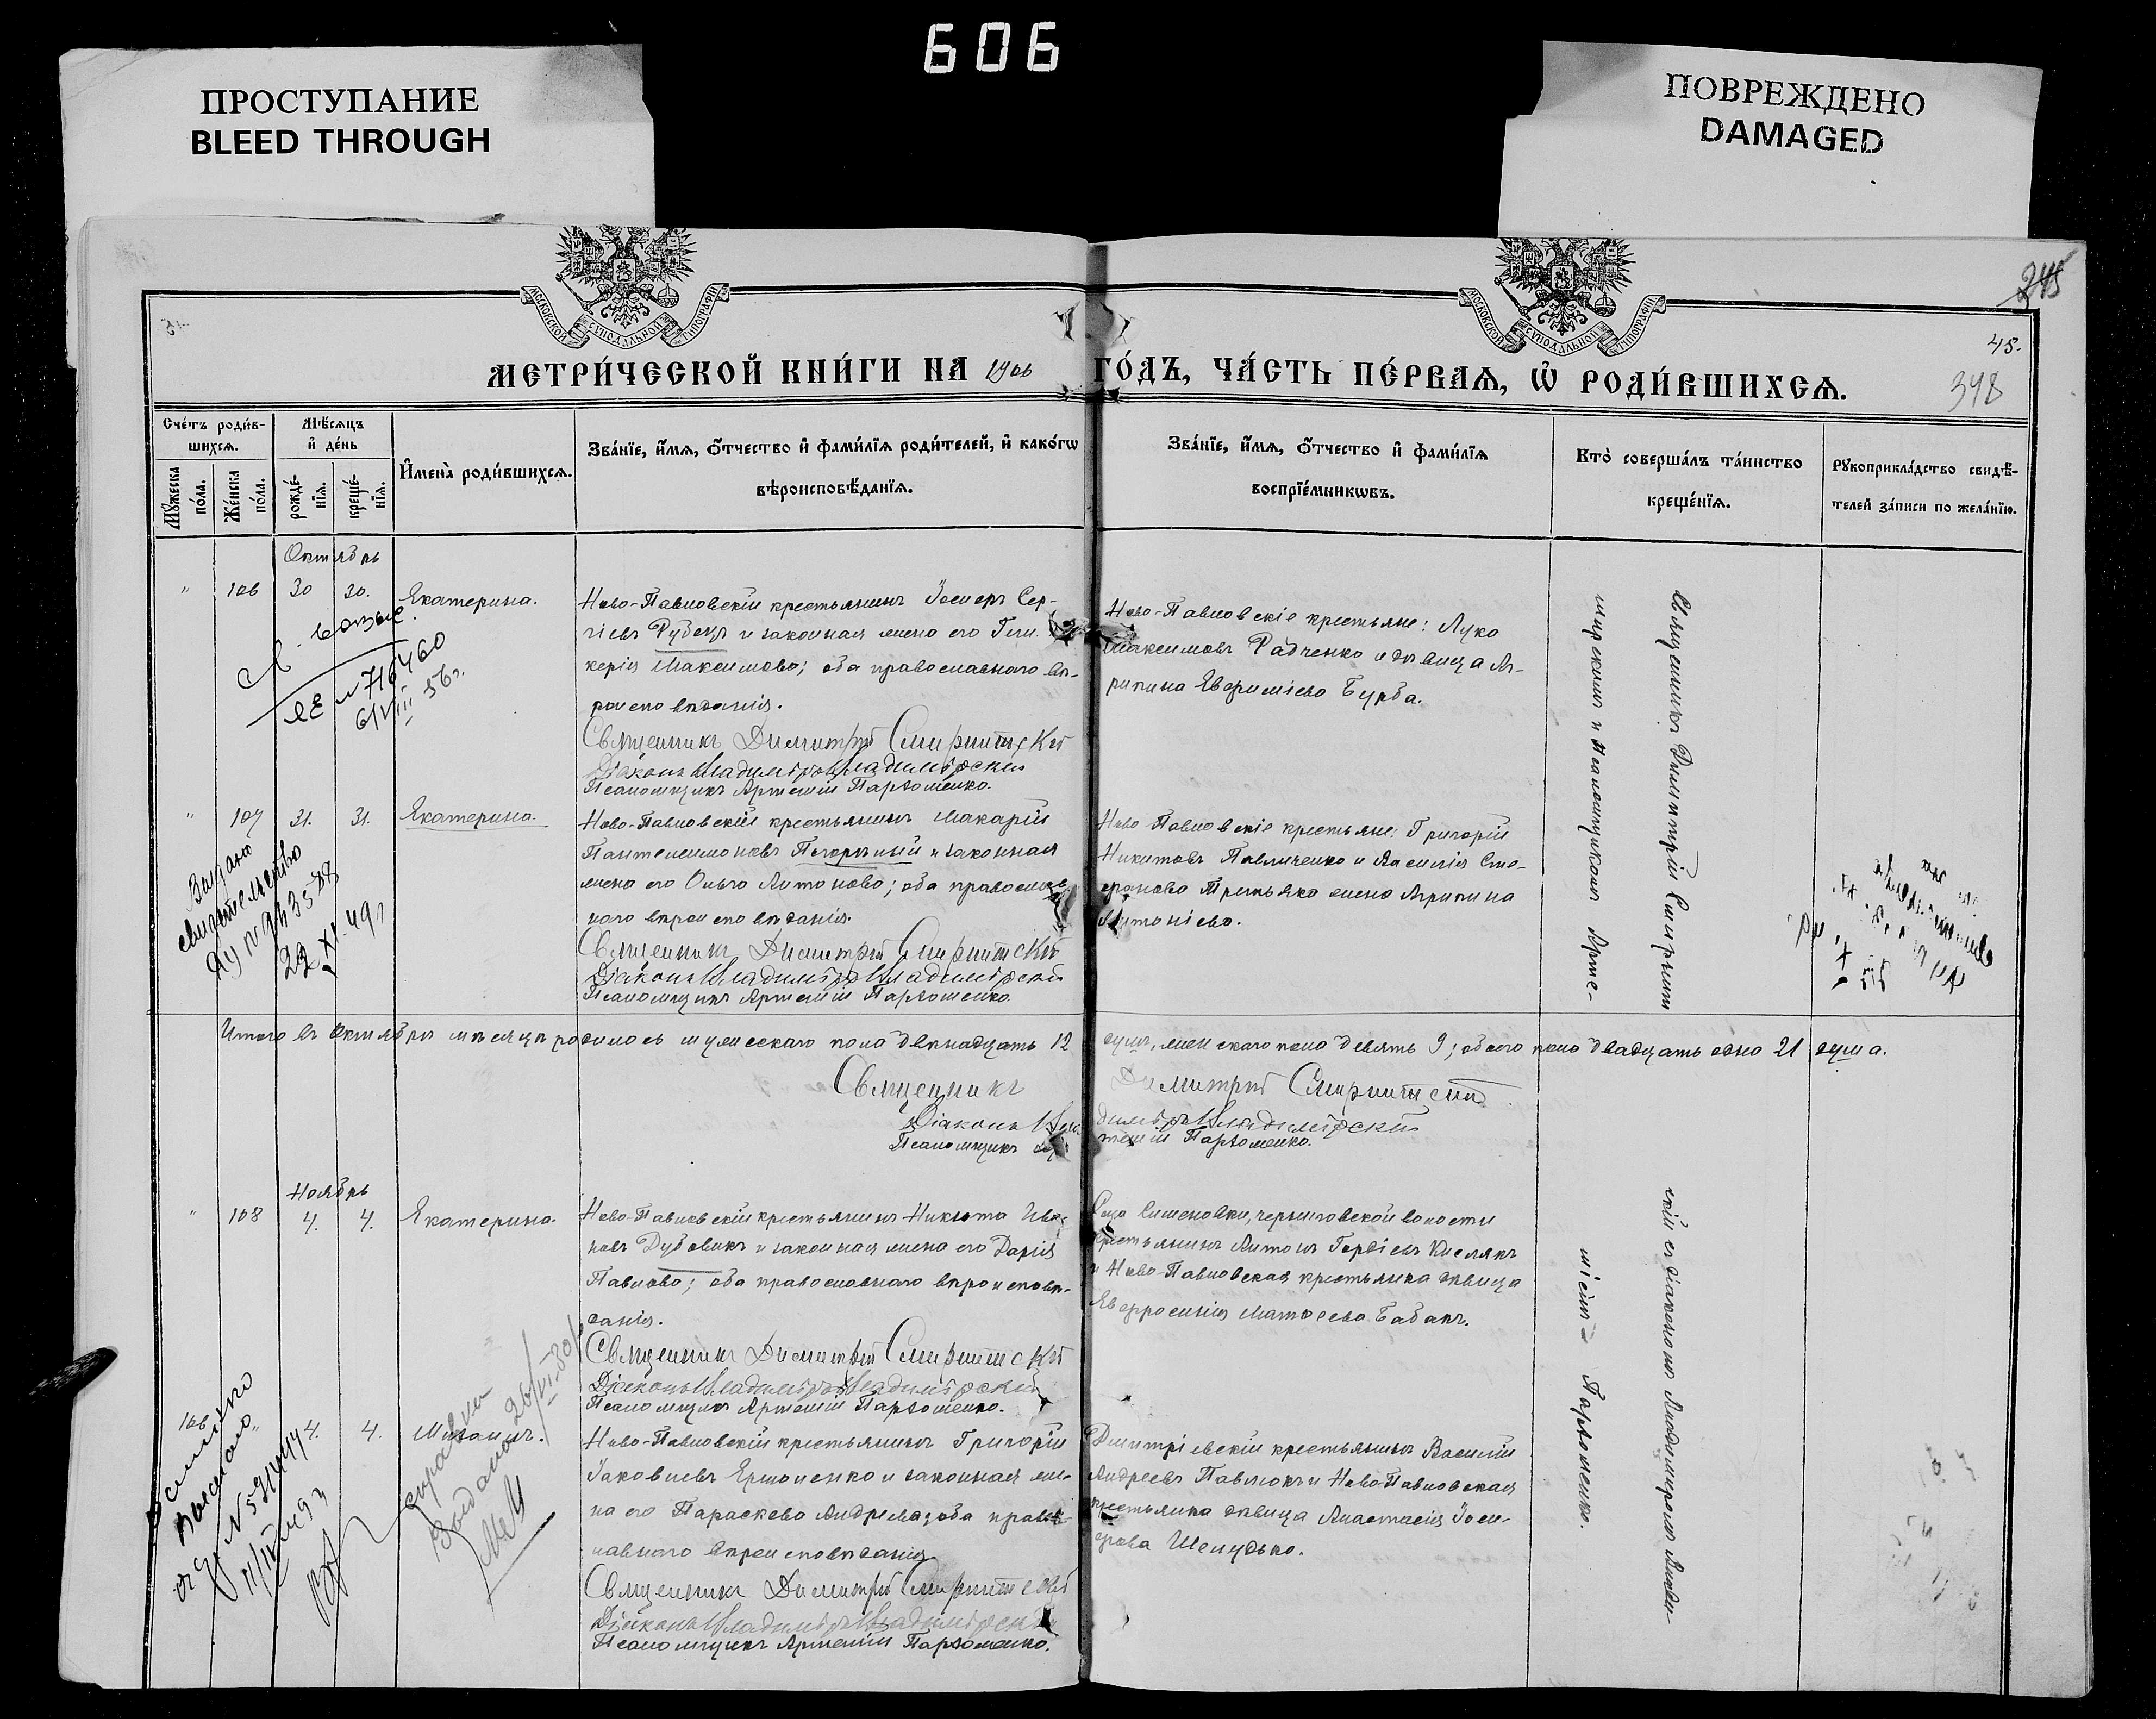 606
ПРОСТУПАНИЕ
BLEED THROUGH
ПОВРЕЖДЕНО
DAMAGED
МОСКОВСКОЙ СѴНОДАЛЬНОЙ ТИПОГРАФІИ
МОСКОВСКОЙ СѴНОДАЛЬНОЙ ТИПОГРАФІИ
245
45.
348
МЕТРИ́ЧЕСКОЙ КНИ́ГИ НА 1906 ГО́ДЪ, ЧА́СТЬ ПЕ́РВАѦ, Ѡ҆ РОДИ́ВШИХСѦ.
Сче́тъ роди́в-
шихсѧ.
Мꙋ́жеска по́ла.
Же́нска по́ла.
Мѣ́сѧцъ
и҆ де́нь
рожде́-
нїѧ.
креще́-
нїѧ.
И҆мена̀ роди́вшихсѧ.
Зва́нїе, и҆́мѧ, ѻ҆́тчество и҆ фами́лїѧ роди́телей, и҆ како́гѡ
вѣроисповѣ́данїѧ.
Зва́нїе, и҆́мѧ, ѻ҆́тчество и҆ фами́лїѧ
воспрїе́мникѡвъ.
Кто̀ соверша́лъ та́инство
креще́нїѧ.
Рꙋкоприкла́дство свидѣ́-
телей за́писи по жела́нїю.
Октябрь
" 106 30 30. Екатерина.
Ново-Павловскій крестьянинъ Іосифъ Сер-
гіевъ Рубецъ и законная жена его Гли-
керія Максимова; оба православнаго вѣ-
роисповѣданія.
Священникъ Димитрій Смирнитскій
Діаконъ Владиміръ Владимірскій
Псаломщикъ Артемій Пархоменко.
Ново-Павловскіе крестьяне: Лука
Максимовъ Радченко и дѣвица Аг-
рипина Евфиміева Бурба.
№ 716460
6/VIII 56г.
" 107 31. 31. Екатерина.
Ново-Павловскій крестьянинъ Макарій
Пантелеимоновъ Погорѣлый и законная
жена его Ольга Антонова; оба православ-
наго вѣроисповѣданія.
Священникъ Димитрій Смирнитскій
Діаконъ Владиміръ Владимірскій
Псаломщикъ Артемій Пархоменко.
Ново Павловскіе крестьяне: Григорій
Никитовъ Павличенко и Василія Сте-
фанова Третьяко жена Агрипина
Антоніева.
Выдано
свидетельство
22 XI 49г
Итого въ Октябрѣ мѣсяцѣ родилось мужескаго пола двѣнадцать 12 душъ, женскаго пола девять 9; обоего пола двадцать одна 21 душа.
Священникъ Димитрій Смирнитскій
Діаконъ Владиміръ Владимірскій
Псаломщикъ Артемій Пархоменко.
Ноябрь
" 108 4. 4. Екатерина.
Ново-Павловскій крестьянинъ Никита Ива-
новъ Дубовикъ и законная жена его Дарія
Павлова; оба православнаго вѣроисповѣ-
данія.
Священникъ Димитрій Смирнитскій
Діаконъ Владиміръ Владимірскій
Псаломщикъ Артемій Пархоменко.
Села Семеновки, черниговской волости
крестьянинъ Антонъ Гордіевъ Кислякъ
и Ново-Павловская крестьянка дѣвица
Евфросинія Матѳеева Бабакъ.
106 " 4. 4. Михаилъ.
Ново-Павловскій крестьянинъ Григорій
Іаковлевъ Ермоленко и законная же-
на его Параскева Андреева; оба право-
славнаго вѣроисповѣданія.
Священникъ Димитрій Смирнитскій
Діаконъ Владиміръ Владимірскій
Псаломщикъ Артемій Пархоменко.
Дмитріевскій крестьянинъ Василій
Андреевъ Павлюкъ и Ново-Павловская
крестьянка дѣвица Анастасія Іоси-
фова Шелудько.
справка
выдана 26/VI-30
Священникъ Димитрій Смирнит-
скій съ діакономъ Владимиромъ Влади-
мірскимъ и псаломщикомъ Арте-
міемъ Пархоменко.